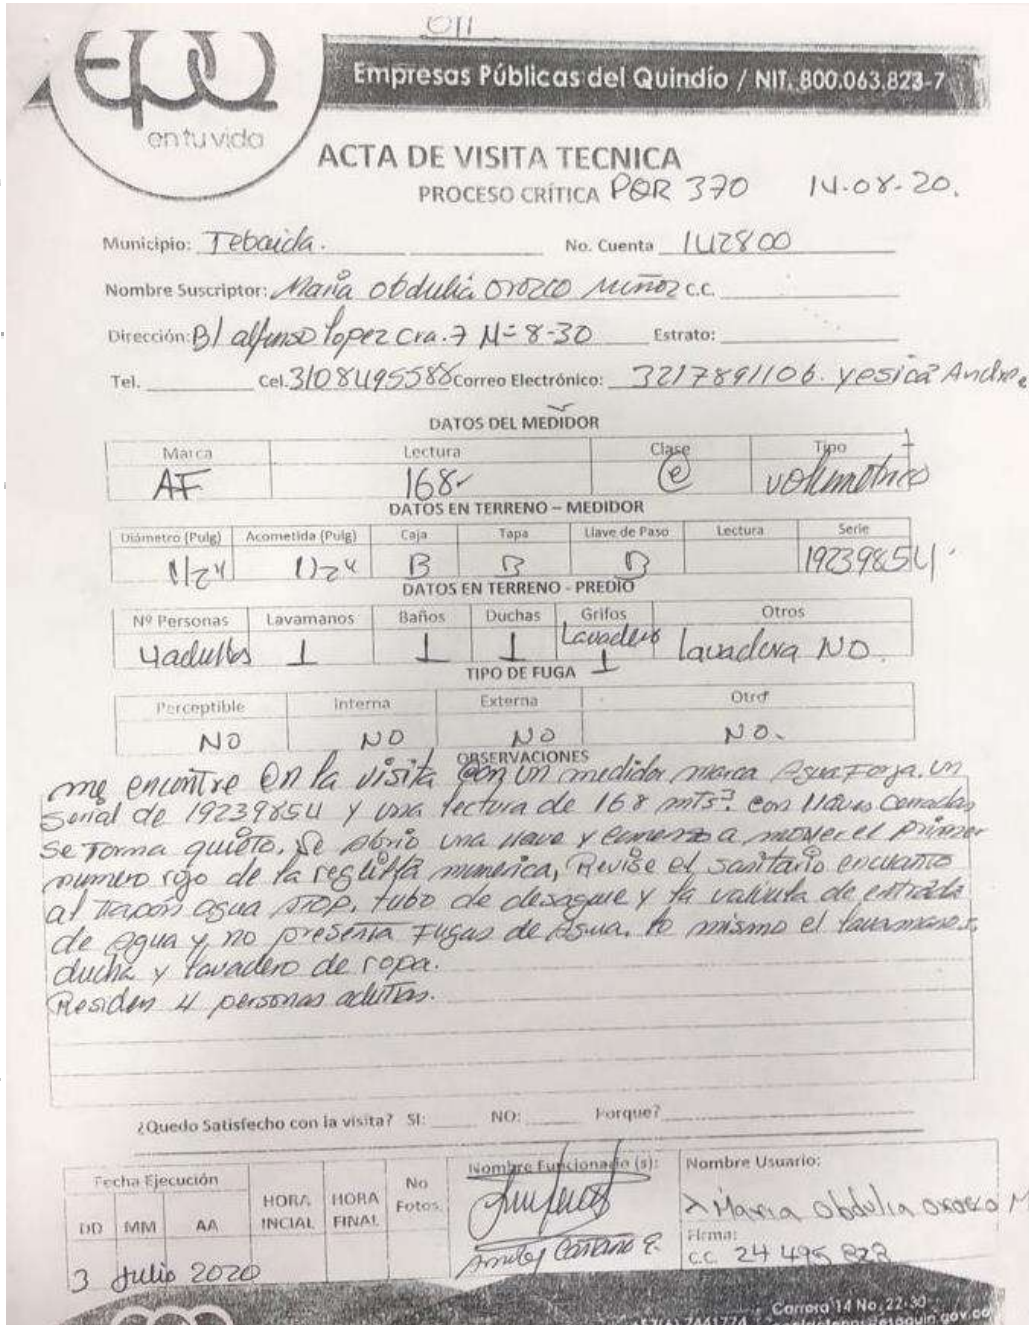 011
epq
en tu vida
Empresas Públicas del Quindío / NIT. 800.063.823-7
ACTA DE VISITA TECNICA
PROCESO CRÍTICA PQR 370 14-08-20.
Municipio: Tebaida. No. Cuenta 142800
Nombre Suscriptor: Maria Obdulia Orozco Muñoz c.c.
Dirección: B/ alfonso Lopez Cra. 7 N= 8-30 Estrato:
Tel. Cel. 3108495588 Correo Electrónico: 3217891106. yesica Andre
DATOS DEL MEDIDOR
Marca Lectura Clase Tipo
AF 168 volumetrico
DATOS EN TERRENO – MEDIDOR
Diámetro (Pulg) Acometida (Pulg) Caja Tapa Llave de Paso Lectura Serie
1/2" 1/2" B B B 19239854
DATOS EN TERRENO - PREDIO
Nº Personas Lavamanos Baños Duchas Grifos Otros
4 adultos 1 1 1 Lavadero 1 lavadora NO.
TIPO DE FUGA
Perceptible Interna Externa Otro
NO NO NO NO.
OBSERVACIONES
me encontre en la visita con un medidor marca Agua Forja. un
Serial de 19239854 y una lectura de 168 mts³. con llaves cerradas
se torna quieto. Se abrio una llave y comenzo a mover el primer
numero rojo de la reglilla numerica, Revise el sanitario encuanto
al tapón agua stop, tubo de desague y la valvula de entrada
de agua y no presenta fugas de agua. lo mismo el lavamanos,
ducha y lavadero de ropa.
Residen 4 personas adultas.
¿Quedo Satisfecho con la visita? SI: NO: Porque?
Fecha Ejecución HORA INCIAL HORA FINAL No Fotos Nombre Funcionado (s): Nombre Usuario:
DD MM AA
x Maria Obdulia Orozco M
Firma:
c.c. 24 495 828
3 Julio 2020
Carrera 14 No. 22-30